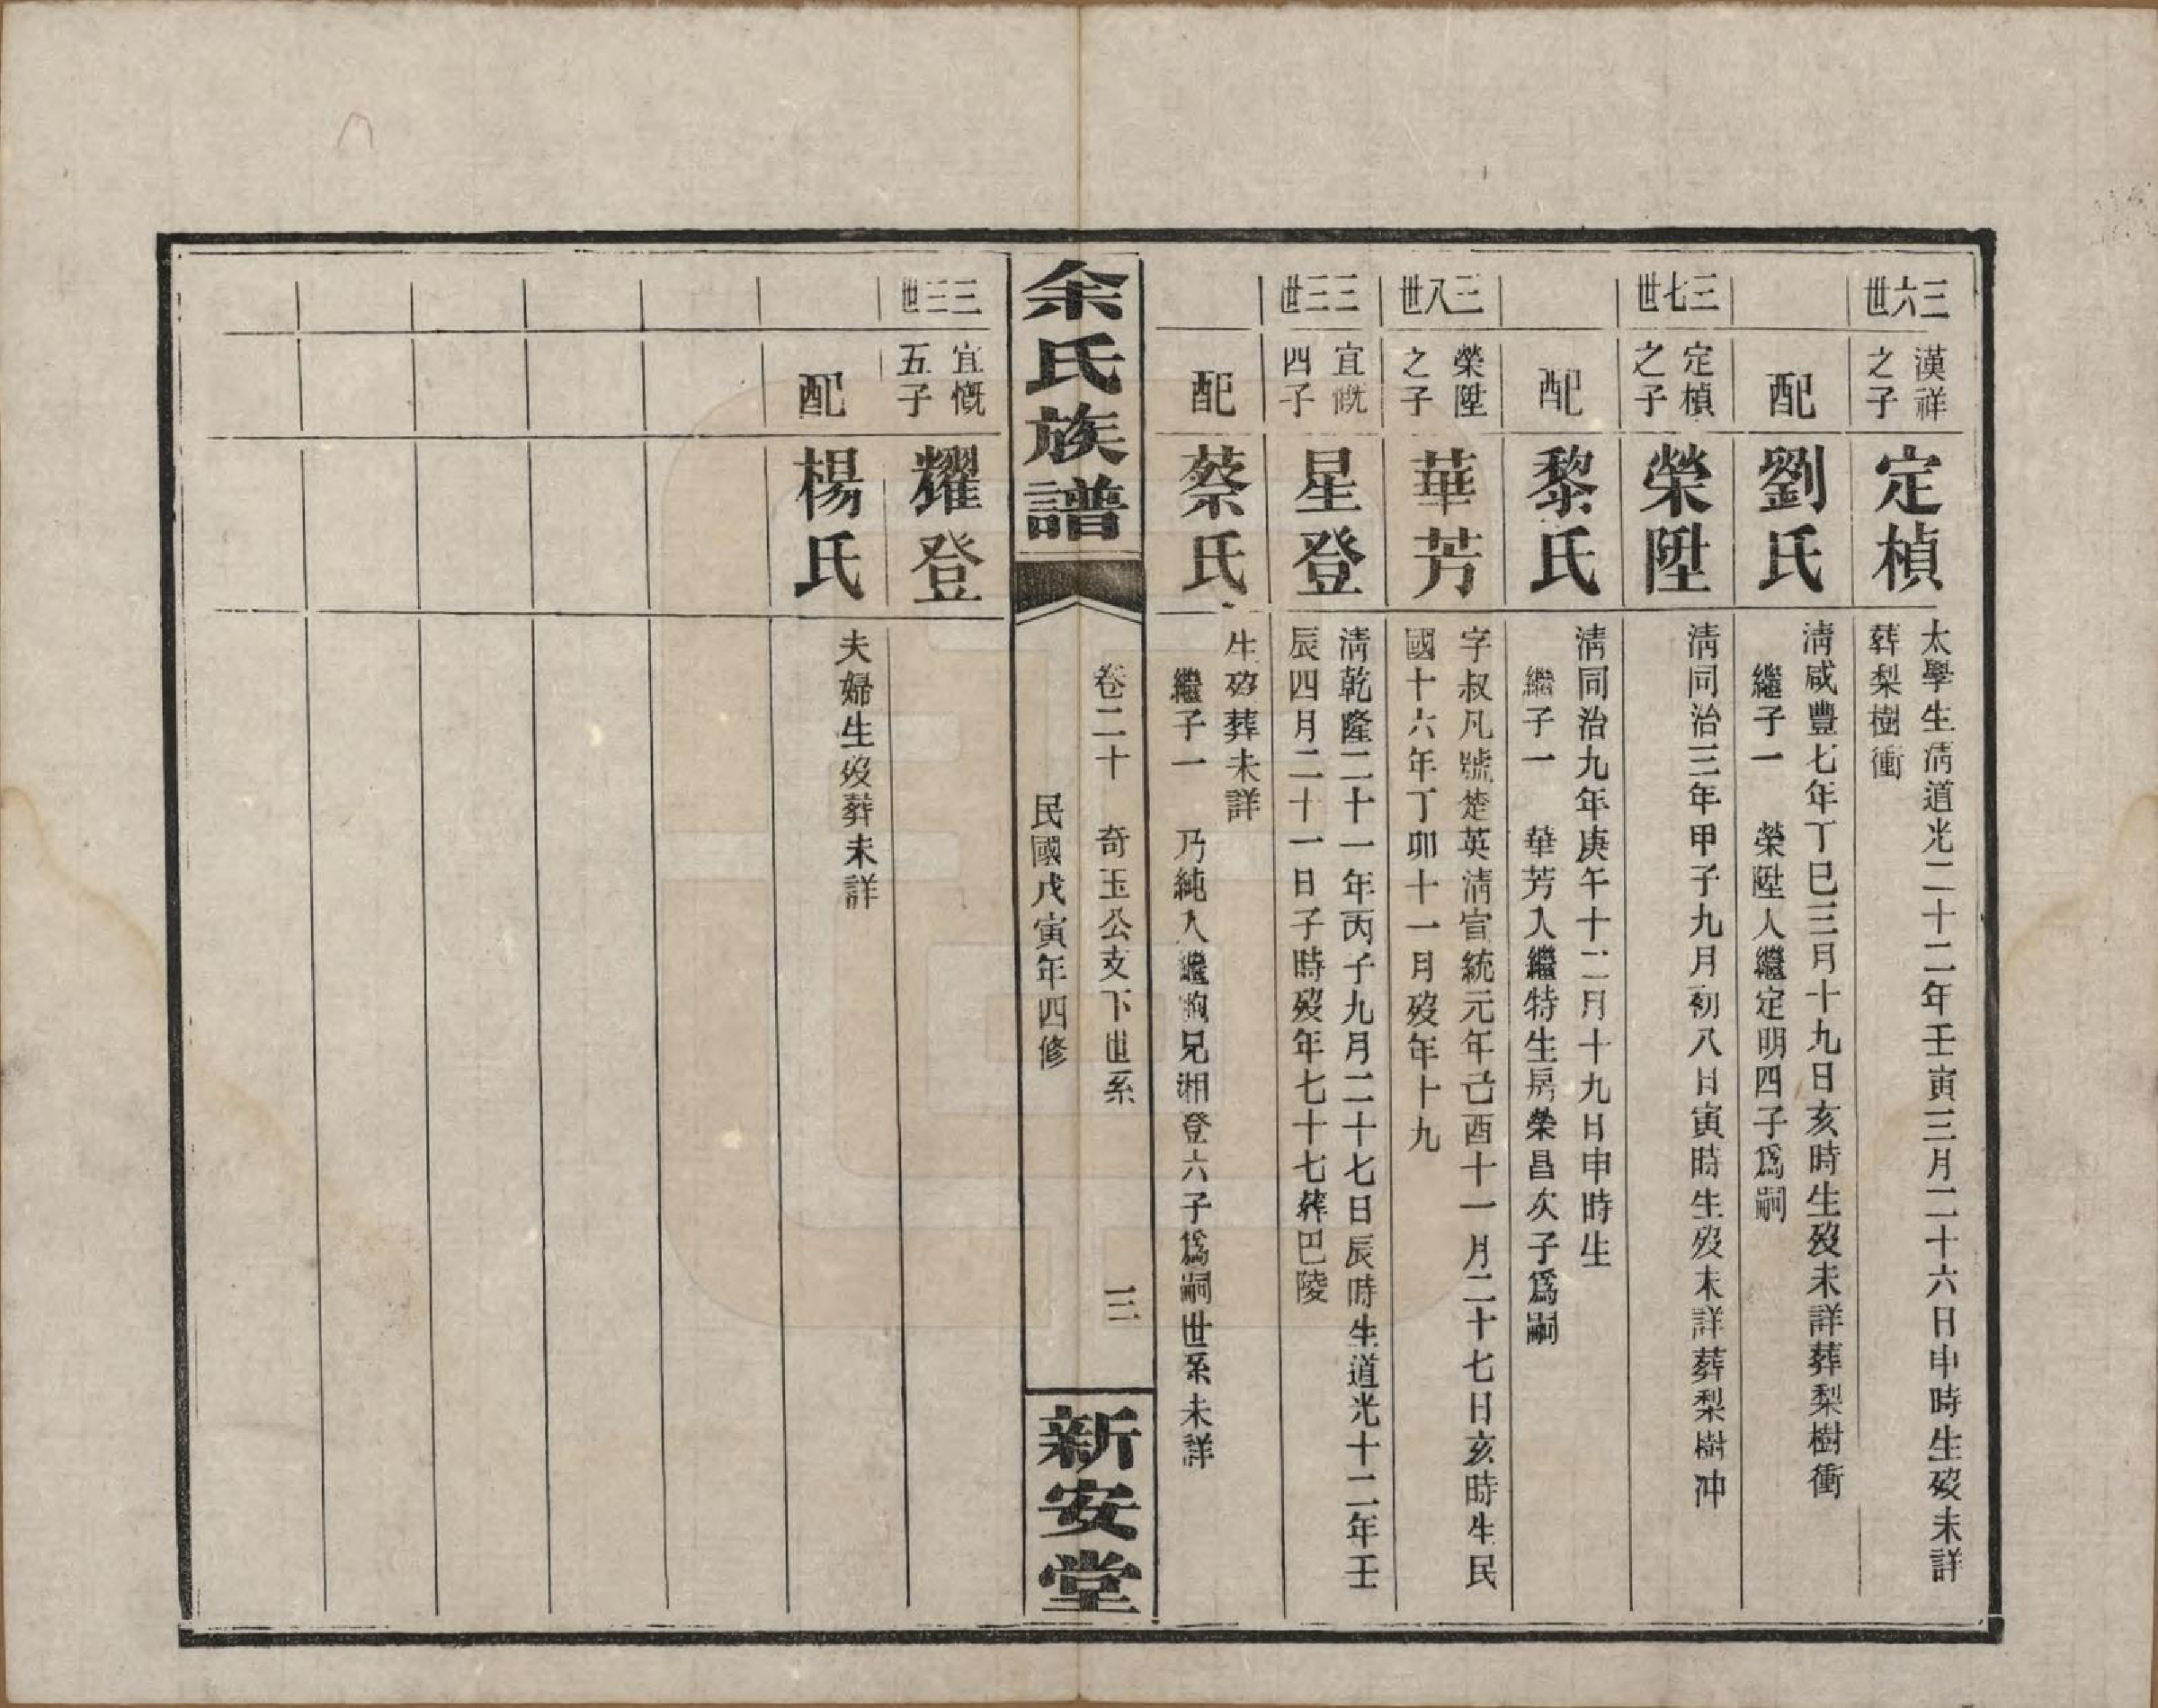 三六世
漢祥
之子
定楨
太學生清道光二十二年壬寅三月二十六日申時生歿未詳
葬梨樹衝
配
劉氏
清咸豐七年丁巳三月十九日亥時生歿未詳葬梨樹衝
繼子一　榮陞人繼定明四子爲嗣
三七世
定楨
之子
榮陞
清同治三年甲子九月初八日寅時生歿未詳葬梨樹冲
配
黎氏
清同治九年庚午十二月十九日申時生
繼子一　華芳入繼特生房榮昌次子爲嗣
三八世
榮陞
之子
華芳
字叔凡號楚英清宣統元年己酉十一月二十七日亥時生民
國十六年丁卯十一月歿年十九
三三世
宜慨
四子
星登
清乾隆二十一年丙子九月二十七日辰時生道光十二年壬
辰四月二十一日子時歿年七十七葬巴陵
配
蔡氏
生歿葬未詳
繼子一　乃純入繼胞兄湘登六子爲嗣世系未詳
余氏族譜
卷二十　奇玉公支下世系　三
民國戊寅年四修
新安堂
三三世
宜慨
五子
耀登
配
楊氏
夫婦生歿葬未詳